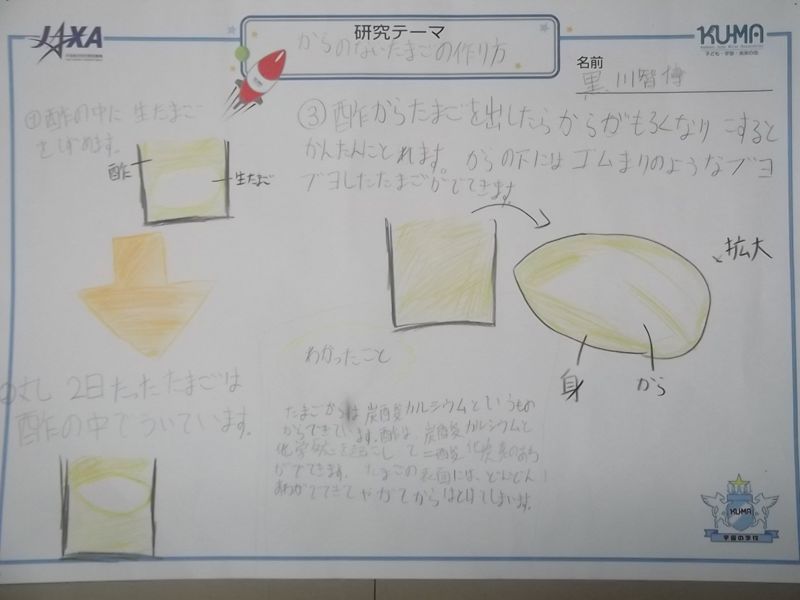 JAXA
研究テーマ
からのないたまごの作り方
KUMA
子ども・宇宙・未来の会
名前
黒川智博
①酢の中に生たまご
をしずめます。
酢
生たまご
②さし 2日たったたまごは
酢の中でういています。
③酢からたまごを出したらからがもろくなり こすると
かんたんにとれます。からの下にはゴムまりのようなブヨ
ブヨしたたまごがでてきます
拡大
身
から
わかったこと
たまごからは炭酸カルシウムというもの
からできています。酢は、炭酸カルシウムと
化学反応を起こして二酸化炭素のあわ
ができます。たまごの表面には、どんどん
あわがでてきてやがてからはとけてしまいます。
KUMA
宇宙の学校